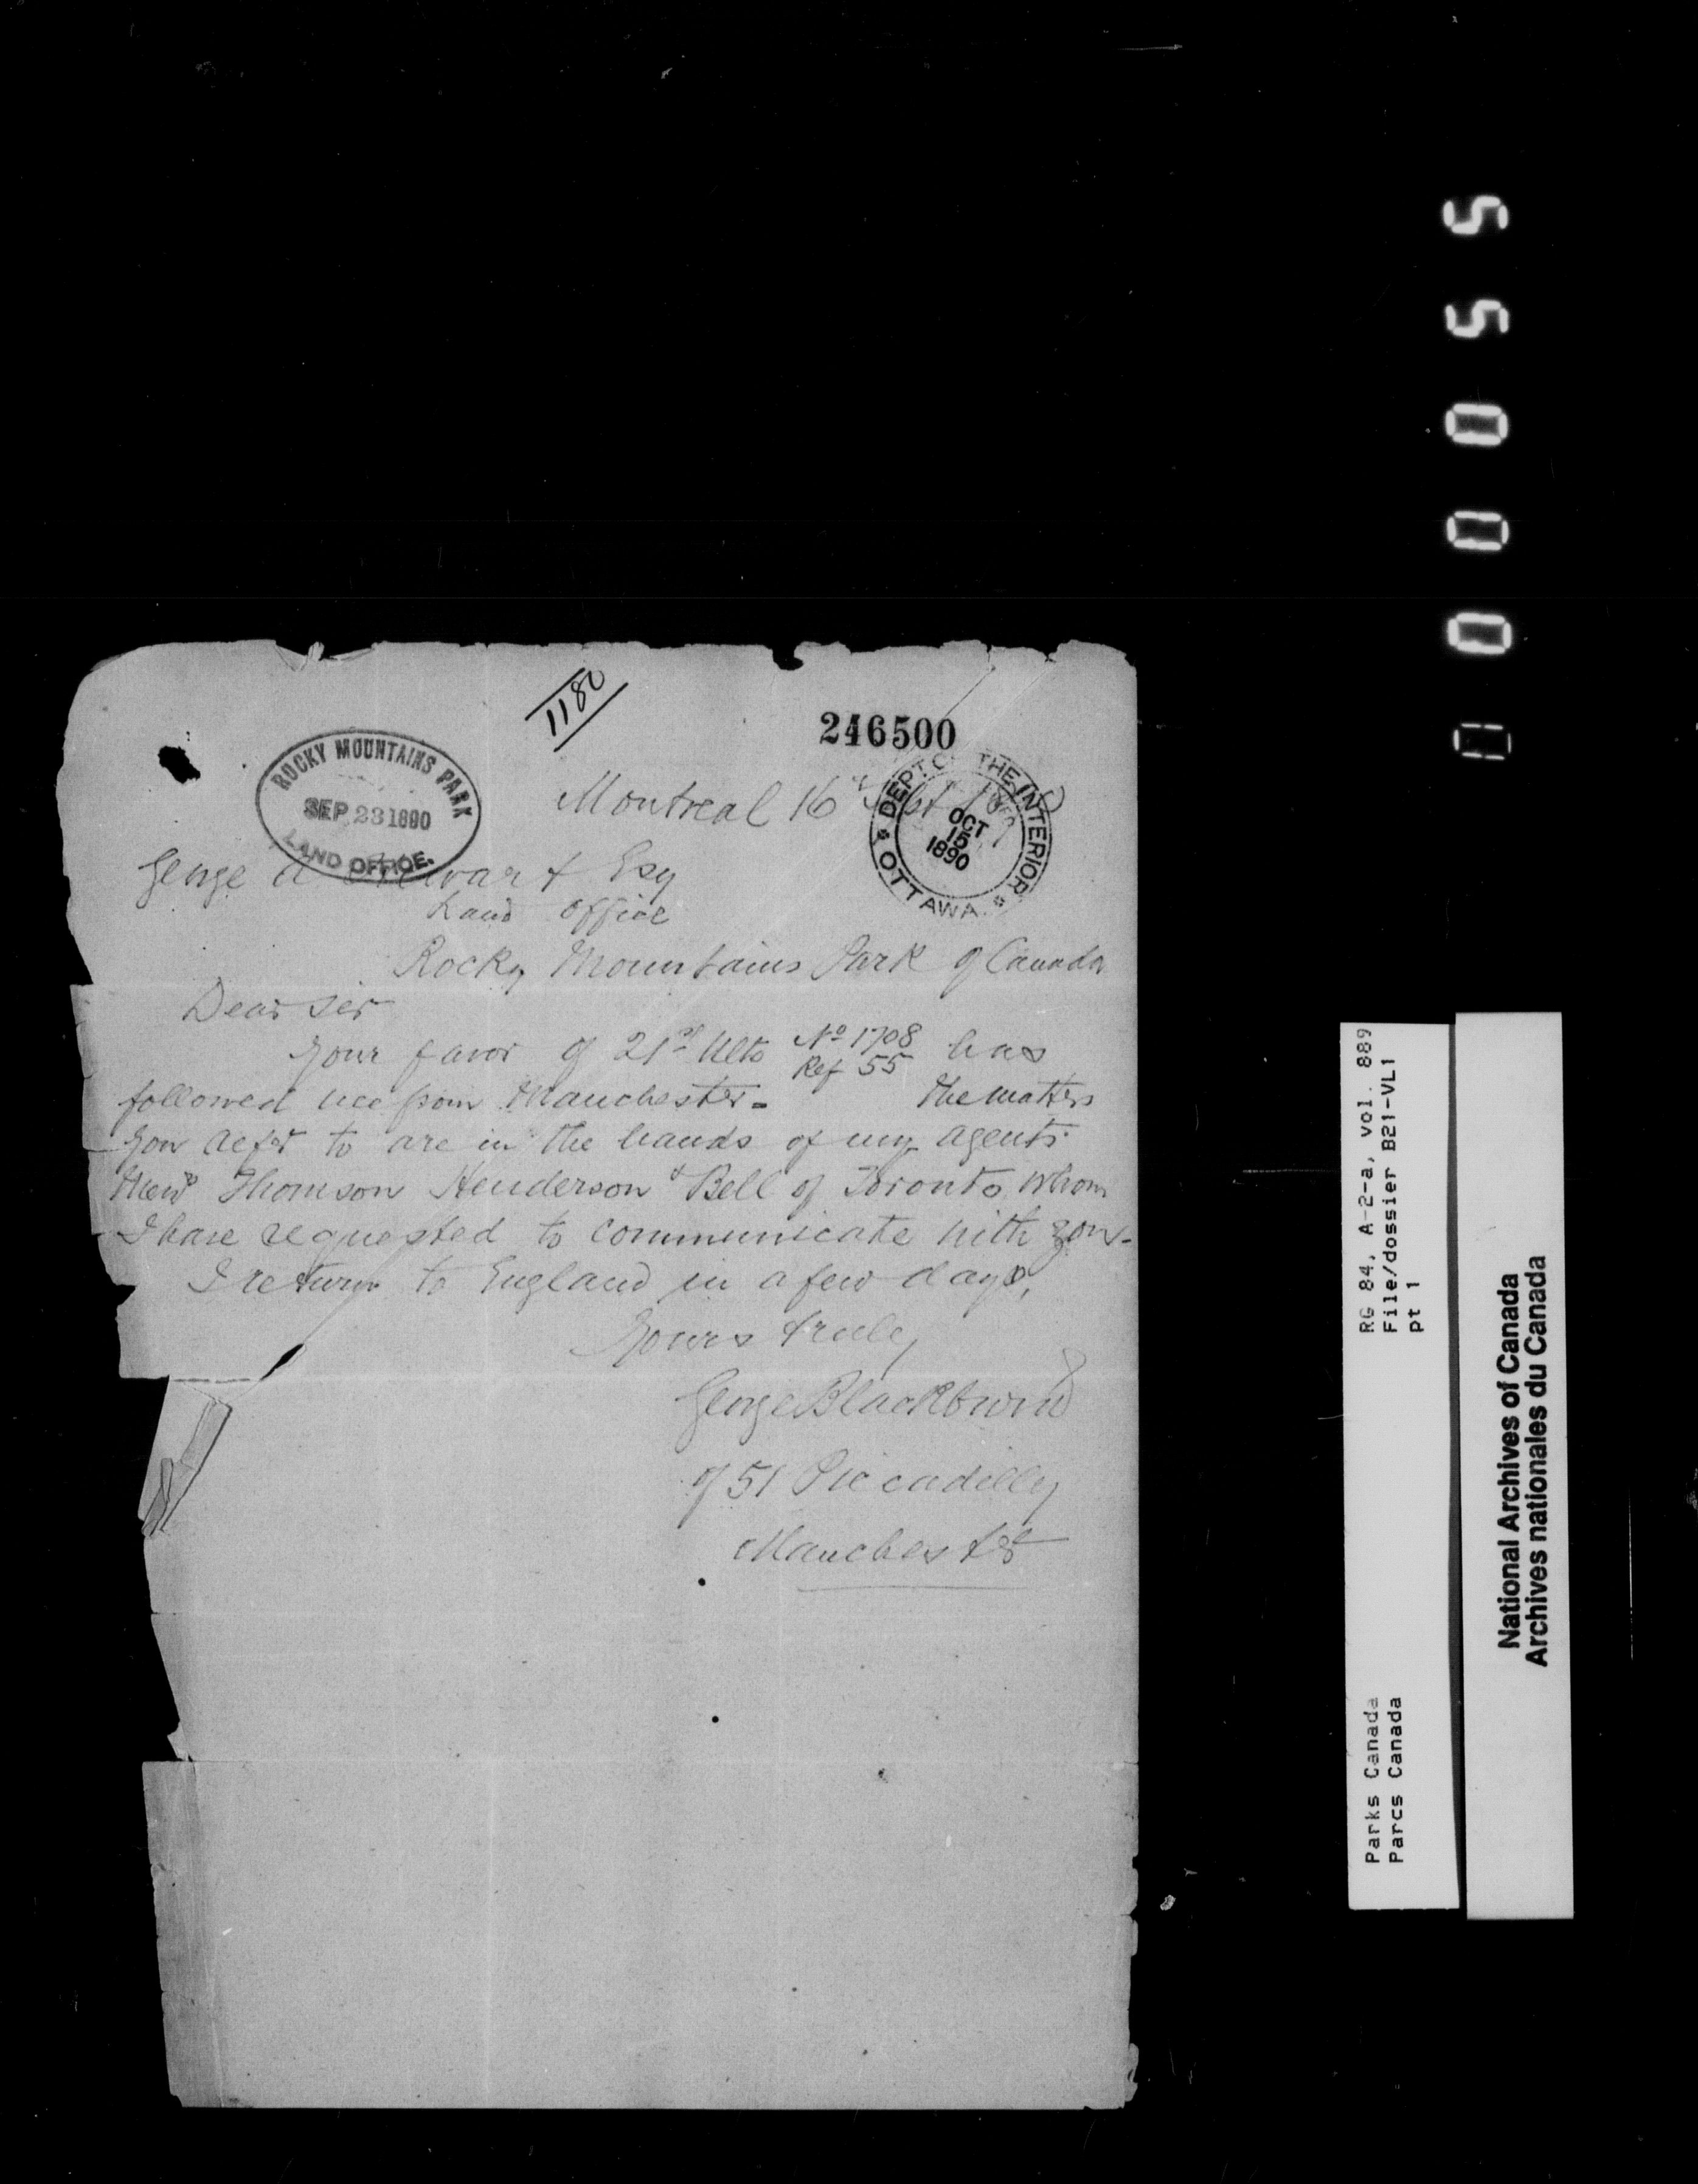 1180
246500
ROCKY MOUNTAINS PARK
SEP 23 1890
LAND OFFICE.
DEPT. OF THE INTERIOR
OCT
15
1890
OTTAWA.
Montreal 16th Sept 1890
George A Stewart Esq
Land Office
Rocky Mountains Park of Canada
Dear Sir
Your favor of 21st Ulto No 1708 has
Ref 55
followed me from Manchester - The matters
you refer to are in the hands of my agents
Messrs Thomson Henderson & Bell of Toronto whom
I have requested to communicate with you -
I return to England in a few days,
Yours truly
George Blackburn
of 51 Piccadilly
Manchester
000055
RG 84, A-2-a, vol. 889
File/dossier B21-VL1
pt 1
Parks Canada
Parcs Canada
National Archives of Canada
Archives nationales du Canada